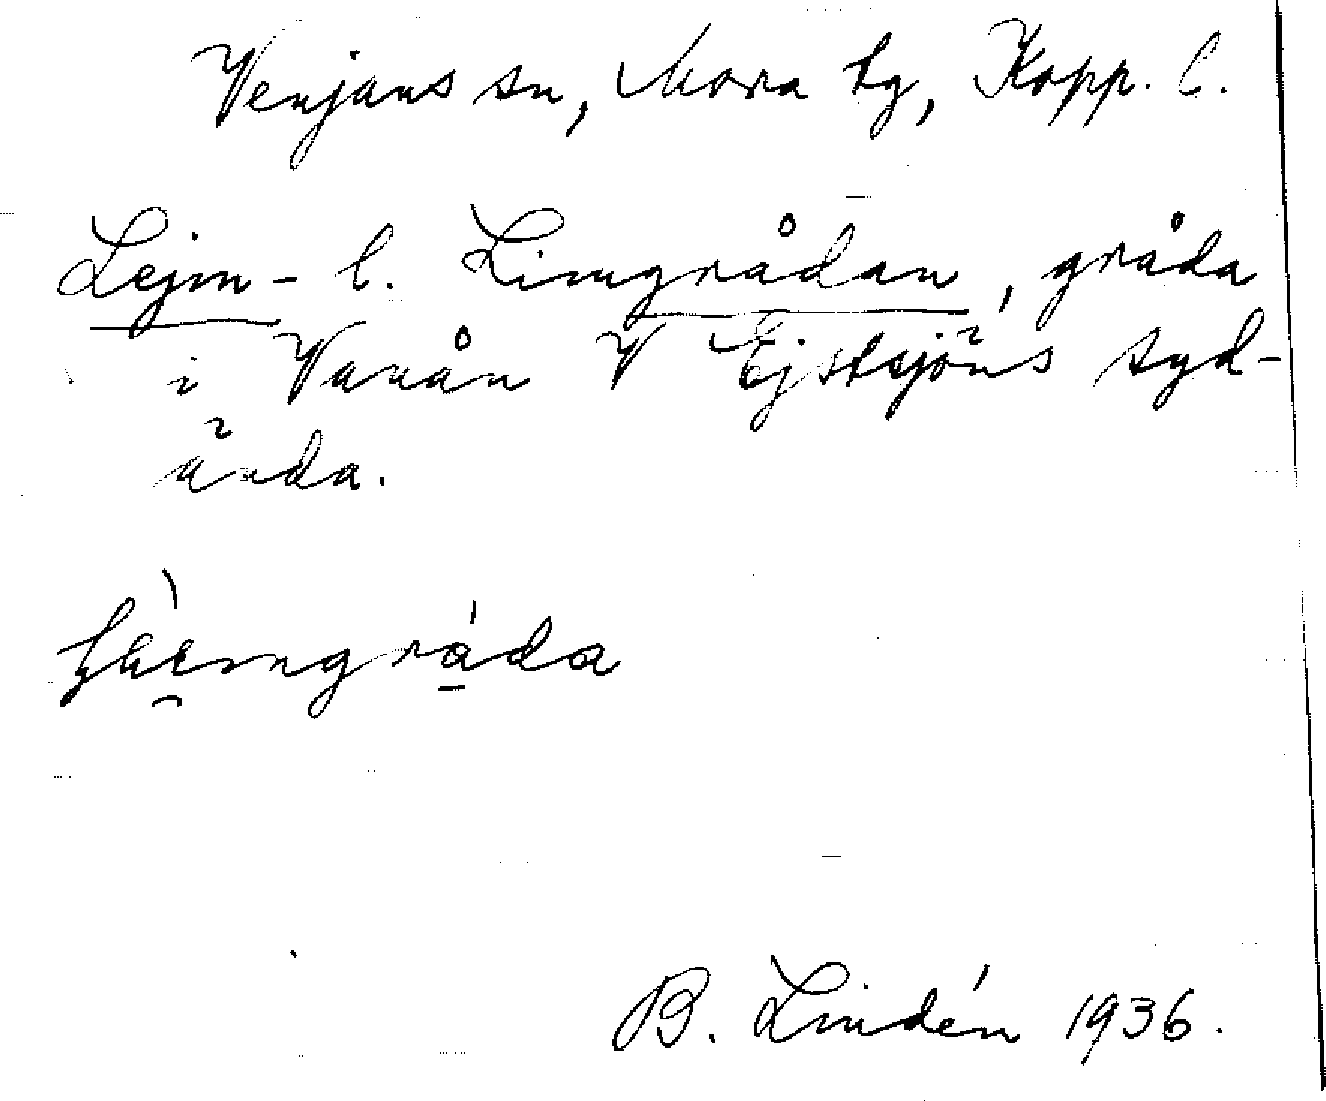 Venjans sn, Mora tg, Kopp. l.
Lejm- l. Limgrådan, gråda
i Vanån V Ejstsjöns syd-
ända.
B. Lindén 1936.